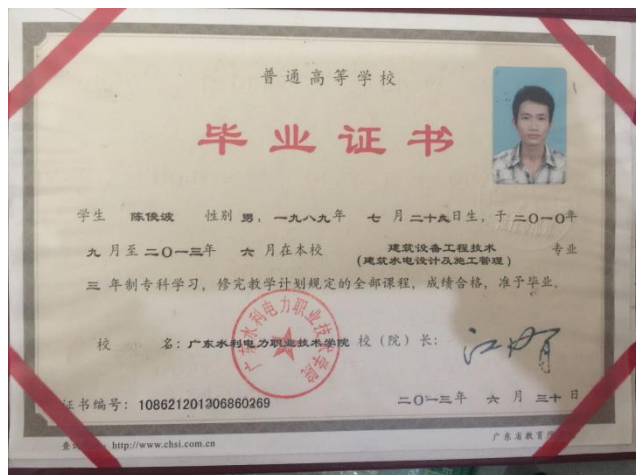 普通高等学校
毕业证书
学生 陈俊波 性别 男，一九八九年 七 月 二十九日生，于 二〇一〇年
九 月至 二〇一三年 六 月在本校 建筑设备工程技术 专业
(建筑水电设计及施工管理)
三 年制专科学习，修完教学计划规定的全部课程，成绩合格，准予毕业。
校 名：广东水利电力职业技术学院 校（院）长：
广东水利电力职业技术学院
证书编号：108621201306860269 二〇一三年 六 月 三十 日
http://www.chsi.com.cn 广东省教育